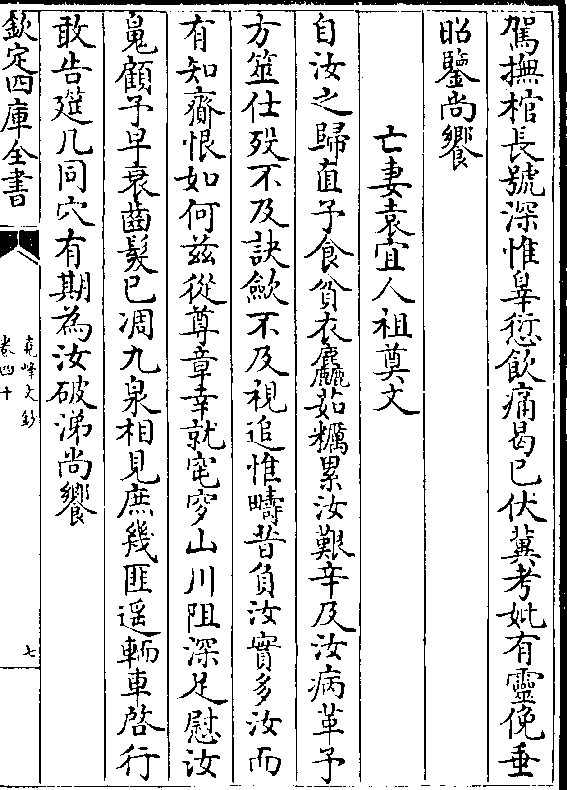 駕撫棺長號深惟辠愆飲痛曷已伏冀考妣有靈俛垂
昭鑒尚饗
亡妻袁宜人祖奠文
自汝之歸直予食貧衣麤茹糲累汝艱辛及汝病革予
方筮仕歿不及訣歛不及視追惟疇昔負汝實多汝而
有知齎恨如何兹從尊章幸就窀穸山川阻深足慰汝
䰟顧予早衰齒髮已凋九泉相見庶幾匪遥輀車啓行
敢告筵几同穴有期為汝破涕尚饗
欽定四庫全書
堯峰文鈔
卷四十
七